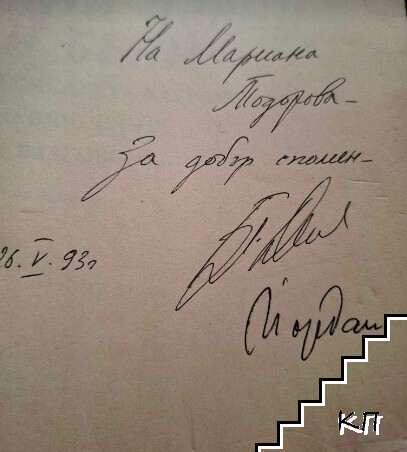 На Мариана
Тодорова –
За добър спомен –
26. V. 93г
Йордан
КП